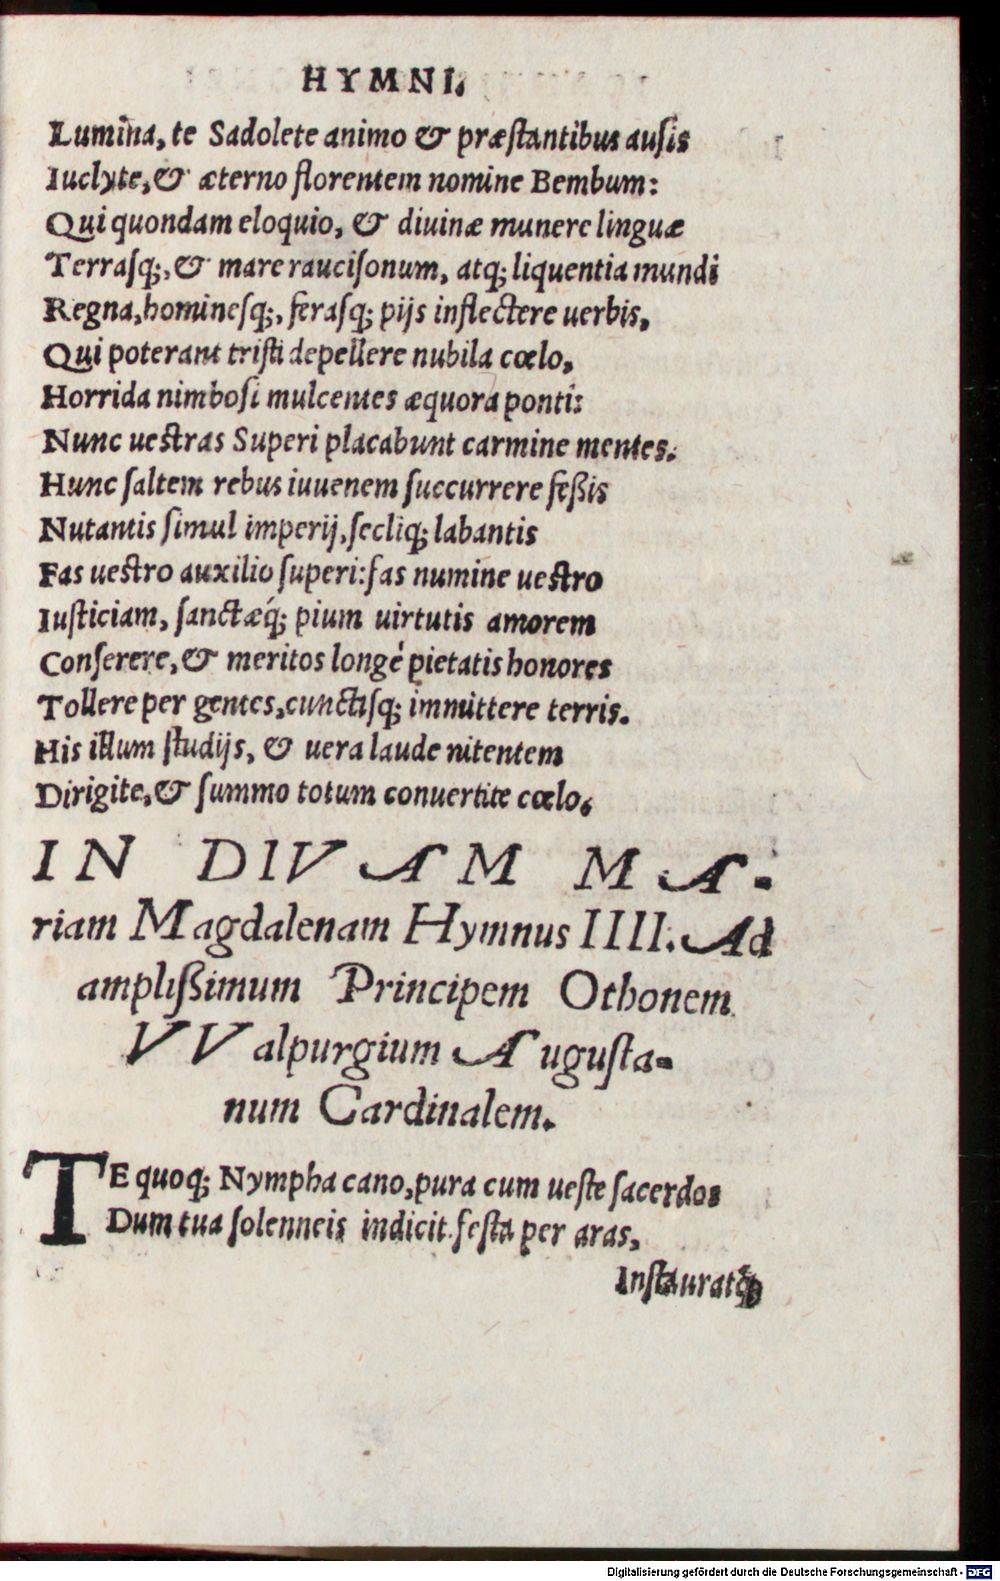 HYMNI.
Lumina, te Sadolete animo & præſtantibus auſis
Iuclyte, & æterno florentem nomine Bembum:
Qui quondam eloquio, & diuinæ munere linguæ
Terraſq;, & mare rauciſonum, atq; liquentia mundi
Regna, homineſq;, feraſq; pijs inflectere uerbis,
Qui poterant triſti depellere nubila cœlo,
Horrida nimboſi mulcentes æquora ponti:
Nunc ueſtras Superi placabunt carmine mentes.
Hunc ſaltem rebus iuuenem ſuccurrere feßis
Nutantis ſimul imperij, ſecliq; labantis
Fas ueſtro auxilio ſuperi: fas numine ueſtro
Iuſticiam, ſanctæq́; pium uirtutis amorem
Conſerere, & meritos longè pietatis honores
Tollere per gentes, cunctiſq; immittere terris.
His illum ſtudijs, & uera laude nitentem
Dirigite, & ſummo totum conuertite cœlo.
IN DIVAM MA-
riam Magdalenam Hymnus IIII. Ad
ampliſßimum Principem Othonem
VValpurgium Auguſta-
num Cardinalem.
TE quoq; Nympha cano, pura cum ueſte ſacerdos
Dum tua ſolenneis indicit feſta per aras,
Inſtauratq́;
Digitalisierung gefördert durch die Deutsche Forschungsgemeinschaft - DFG